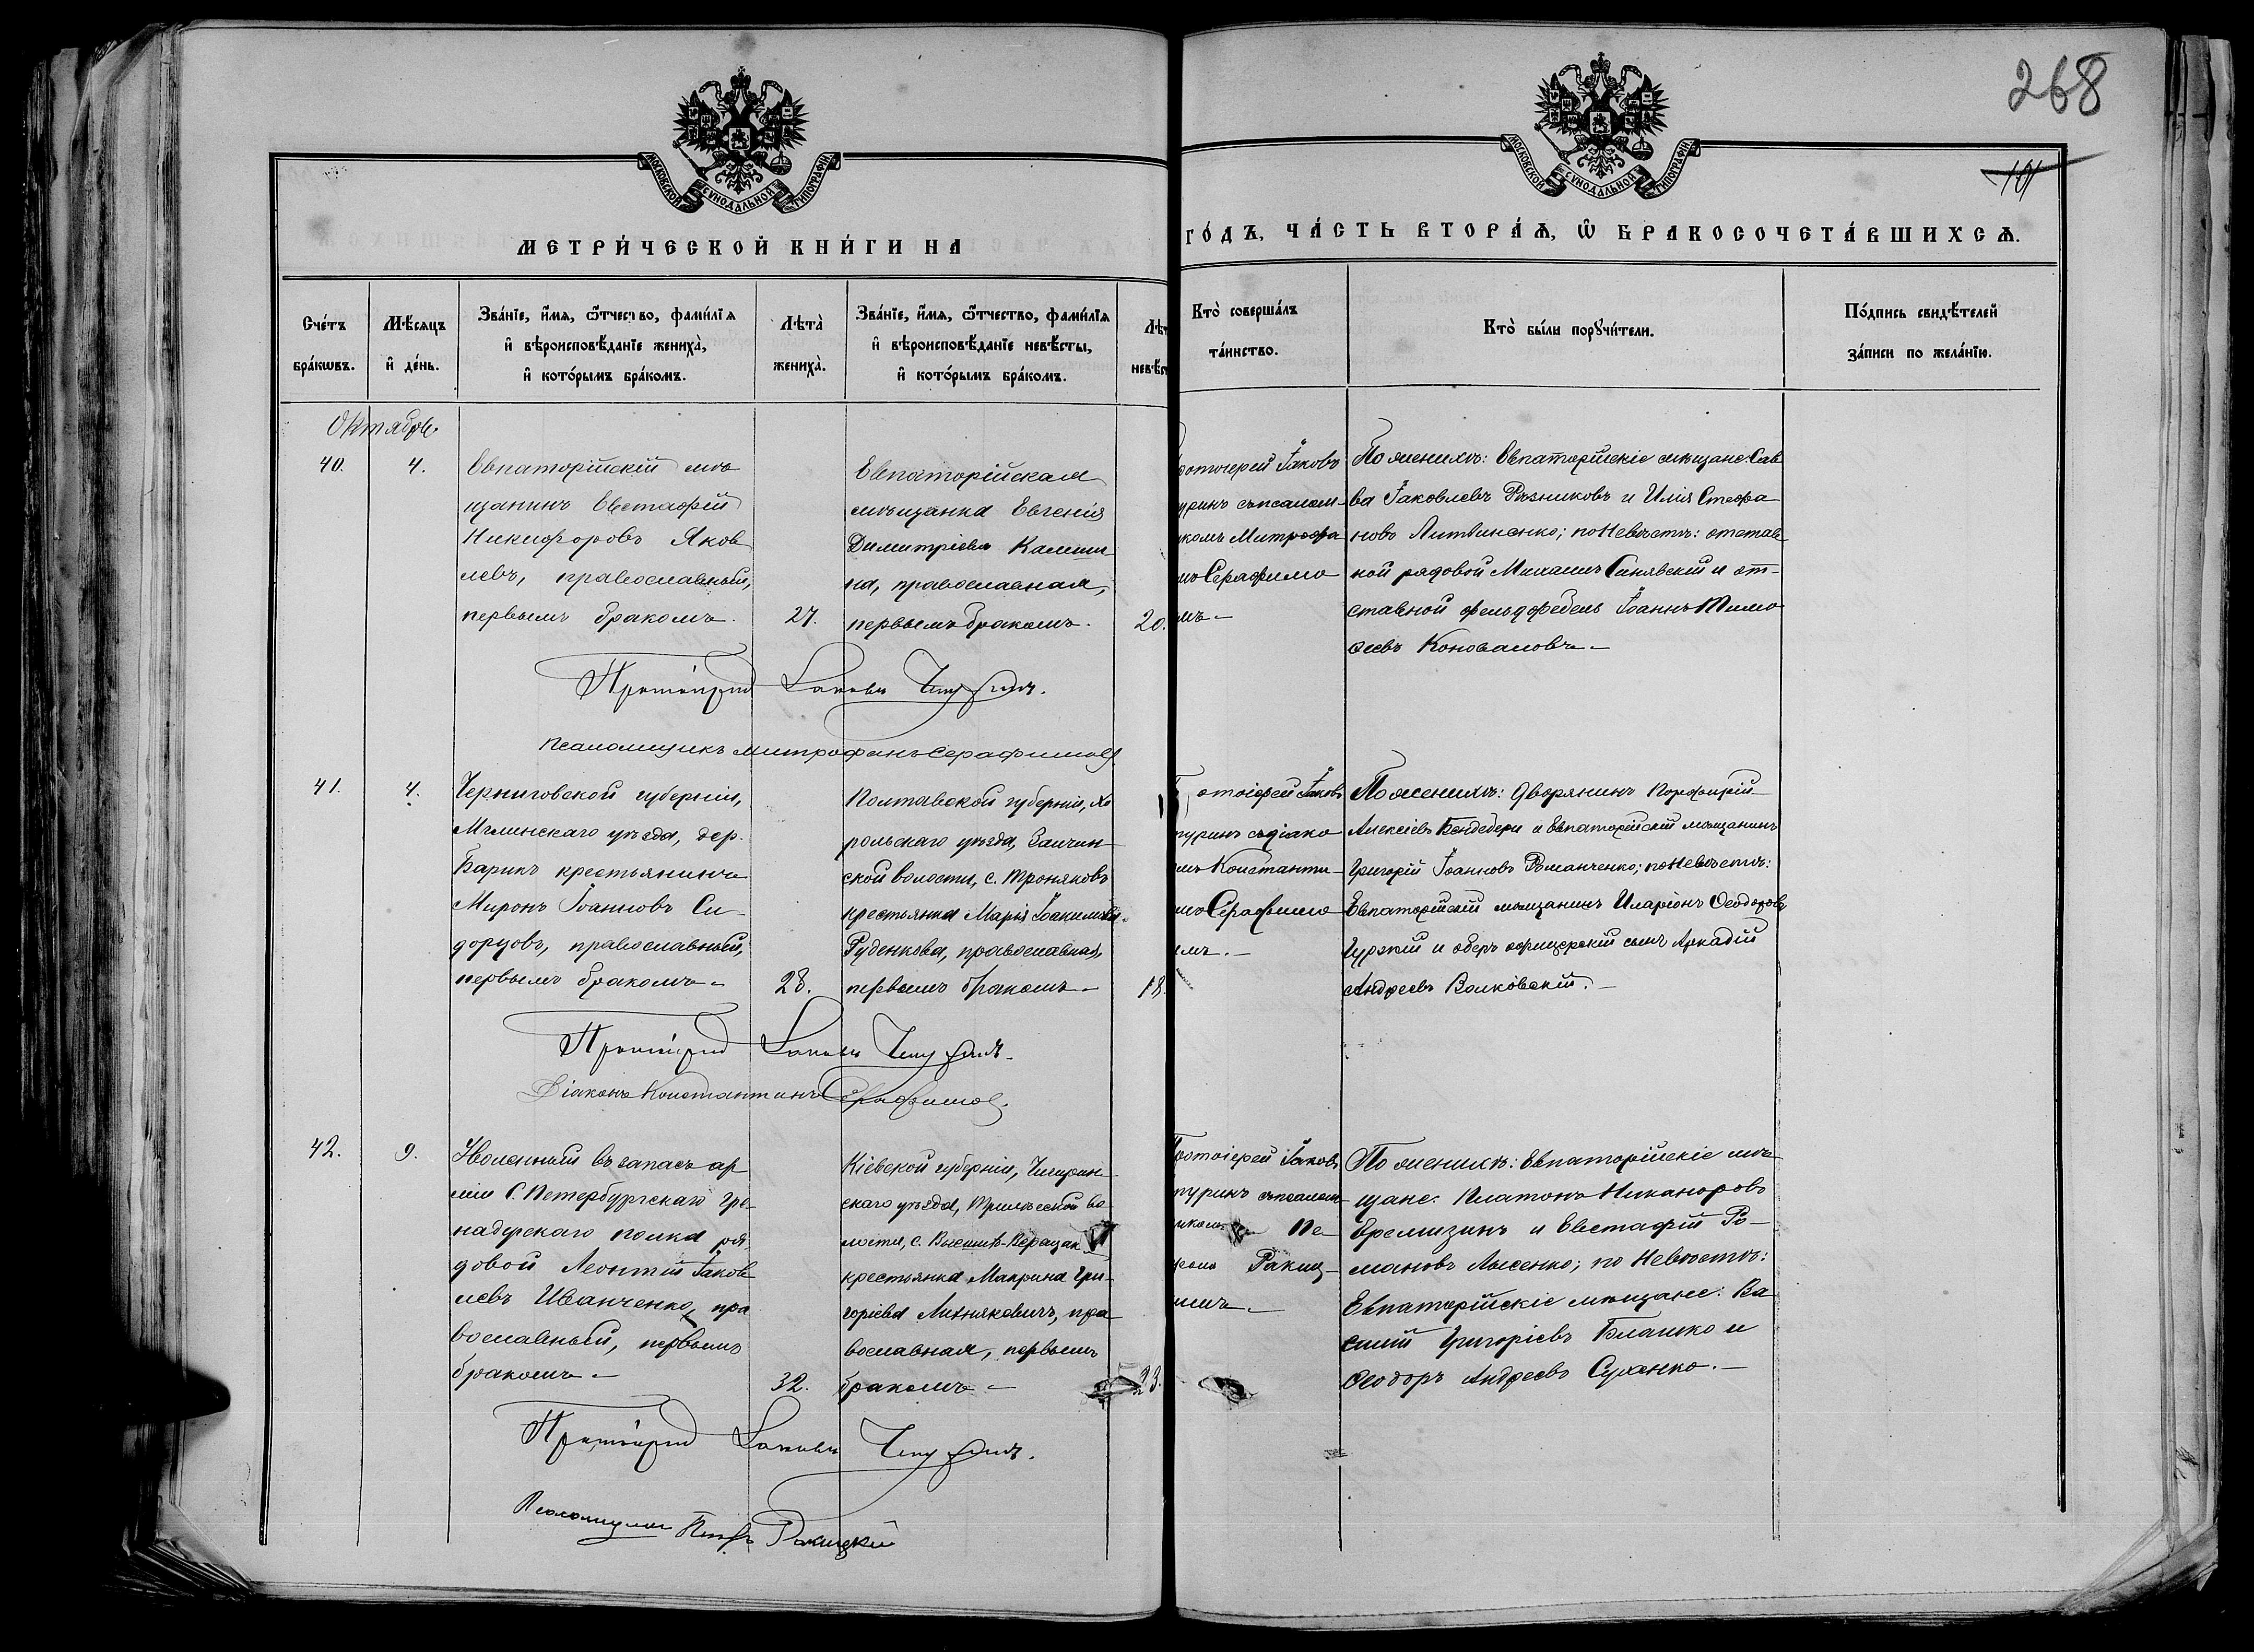 268
101
МОСКОВСКОЙ СУНОДАЛЬНОЙ ТИПОГРАФІИ
МОСКОВСКОЙ СУНОДАЛЬНОЙ ТИПОГРАФІИ
МЕТРИ́ЧЕСКОЙ КНИ́ГИ НА
ГО́ДЪ, ЧА́СТЬ ВТОРА́Ѧ, Ѿ БРАКОСОЧЕТА́ВШИХСѦ.
Сче́тъ бра́кωвъ.
Мѣ́сяцъ и҆ де́нь.
Зва́нїе, и҆́мѧ, ѻ҆́тчество, фами́лїѧ
и҆ вѣроисповѣ́данїе жениха̀,
и҆ кото́рымъ бра́комъ.
Лѣта̀ жениха̀.
Зва́нїе, и҆́мѧ, ѻ҆́тчество, фами́лїѧ
и҆ вѣроисповѣ́данїе невѣ́сты,
и҆ кото́рымъ бра́комъ.
Лѣт невѣ́с
Кто̀ соверша́лъ та́инство.
Кто̀ бы́ли порꙋчи́тели.
По́дпись свидѣ́телей за́писи по жела́нїю.
Октябрь
40.
4.
Евпаторійскій мѣ
щанинъ Евстафій
Никифоровъ Яков
левъ, православный,
первымъ бракомъ.
27.
Евпаторійская
мѣщанка Евгенія
Димитріева Калини
на, православная,
первымъ бракомъ.
20.
ротоіерей Іаковъ
пуринъ съ псалом-
комъ Митрофа
мъ Серафимо
мъ.-
По женихѣ: Евпаторійскіе мѣщане: Сав
ва Іаковлевъ Рѣзниковъ и Илія Стефа
новъ Литвиненко; по Невѣстѣ: отстав
ной рядовой Михаилъ Синявскій и от-
ставной фельдфебель Іоаннъ Тимо
ѳеевъ Коноваловъ.-
Протоіерей Іаковъ Чепуринъ.
Псаломщикъ Митрофанъ Серафимовъ
41.
4.
Черниговской губерніи,
Мглинскаго уѣзда, дер.
Барикъ крестьянинъ
Миронъ Іоанновъ Си-
дорцовъ, православный,
первымъ бракомъ.-
28.
Полтавской губерніи, Хо
рольскаго уѣзда,
ской волости, с. Трояновъ
крестьянка Марія
Руденкова, православная,
первымъ бракомъ.-
18.
отоіерей Іаковъ
пуринъ съ діако
мъ Константи-
мъ Серафимо-
мъ.-
По женихѣ: Дворянинъ Порфирій
Алексіевъ Бендебери и Евпаторійскій мѣщанинъ
Григорій Іоанновъ Романченко; по Невѣстѣ:
Евпаторійскій мѣщанинъ Иларіонъ Ѳеодоровъ
Гурскій и оберъ офицерскій сынъ Аркадій
Андреевъ Волковскій.-
Протоіерей Іаковъ Чепуринъ.
Діаконъ Константинъ Серафимовъ.
42.
9.
Уволенный въ запасъ ар
міи С. Петербургскаго гре-
надерскаго полка ря
довой Леонтій Іаков
левъ Иванченко, пра
вославный, первымъ
бракомъ.-
32.
Кіевской губерніи, Чигирин-
скаго уѣзда, Трилѣсской во
лости, с. Вы Верещак
крестьянка Макрина Гри-
горіева Михнякевичъ, пра-
вославная, первымъ
бракомъ.-
23.
ротоіерей Іаковъ
пуринъ съ псалом-
комъ Пе-
Ракиц-
имъ.-
По женихѣ: Евпаторійскіе мѣ
щане: Платонъ Никаноровъ
Еремизинъ и Евстафій Ро-
мановъ Лысенко; по Невѣстѣ:
Евпаторійскіе мѣщане: Ва
силій Григоріевъ Блашко и
Ѳеодоръ Андреевъ Суханко.-
Протоіерей Іаковъ Чепуринъ.
Псаломщикъ Петръ Ракицкій